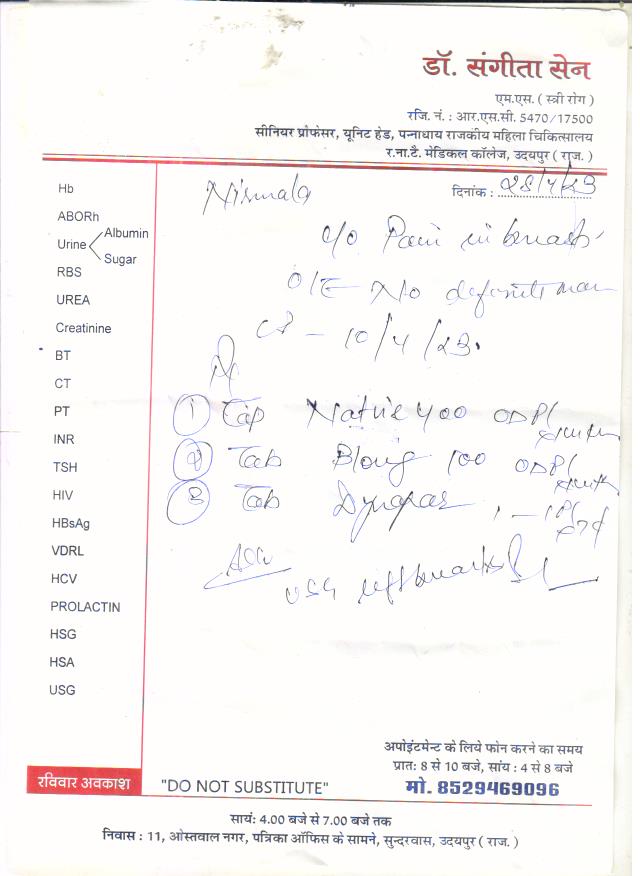 डॉ. संगीता सेन
एम.एस. ( स्त्री रोग )
रजि. नं. : आर.एस.सी. 5470/17500
सीनियर प्रोफेसर, यूनिट हेड, पन्नाधाय राजकीय महिला चिकित्सालय
र.ना.टै. मेडिकल कॉलेज, उदयपुर ( राज. )
दिनांक : 28/4/23
Nirmala
c/o Pain in breast
O/E - No definite mass
- 10/4/23.
Rx
① Cap 400 OD
② Tab Blong 100 OD
③ Tab Dynapar
Adv
USG breasts
Hb
ABORh
Urine Albumin
Sugar
RBS
UREA
Creatinine
BT
CT
PT
INR
TSH
HIV
HBsAg
VDRL
HCV
PROLACTIN
HSG
HSA
USG
अपोइंटमेन्ट के लिये फोन करने का समय
प्रात: 8 से 10 बजे, सांय : 4 से 8 बजे
रविवार अवकाश "DO NOT SUBSTITUTE" मो. 8529469096
सायं: 4.00 बजे से 7.00 बजे तक
निवास : 11, ओस्तवाल नगर, पत्रिका ऑफिस के सामने, सुन्दरवास, उदयपुर ( राज. )